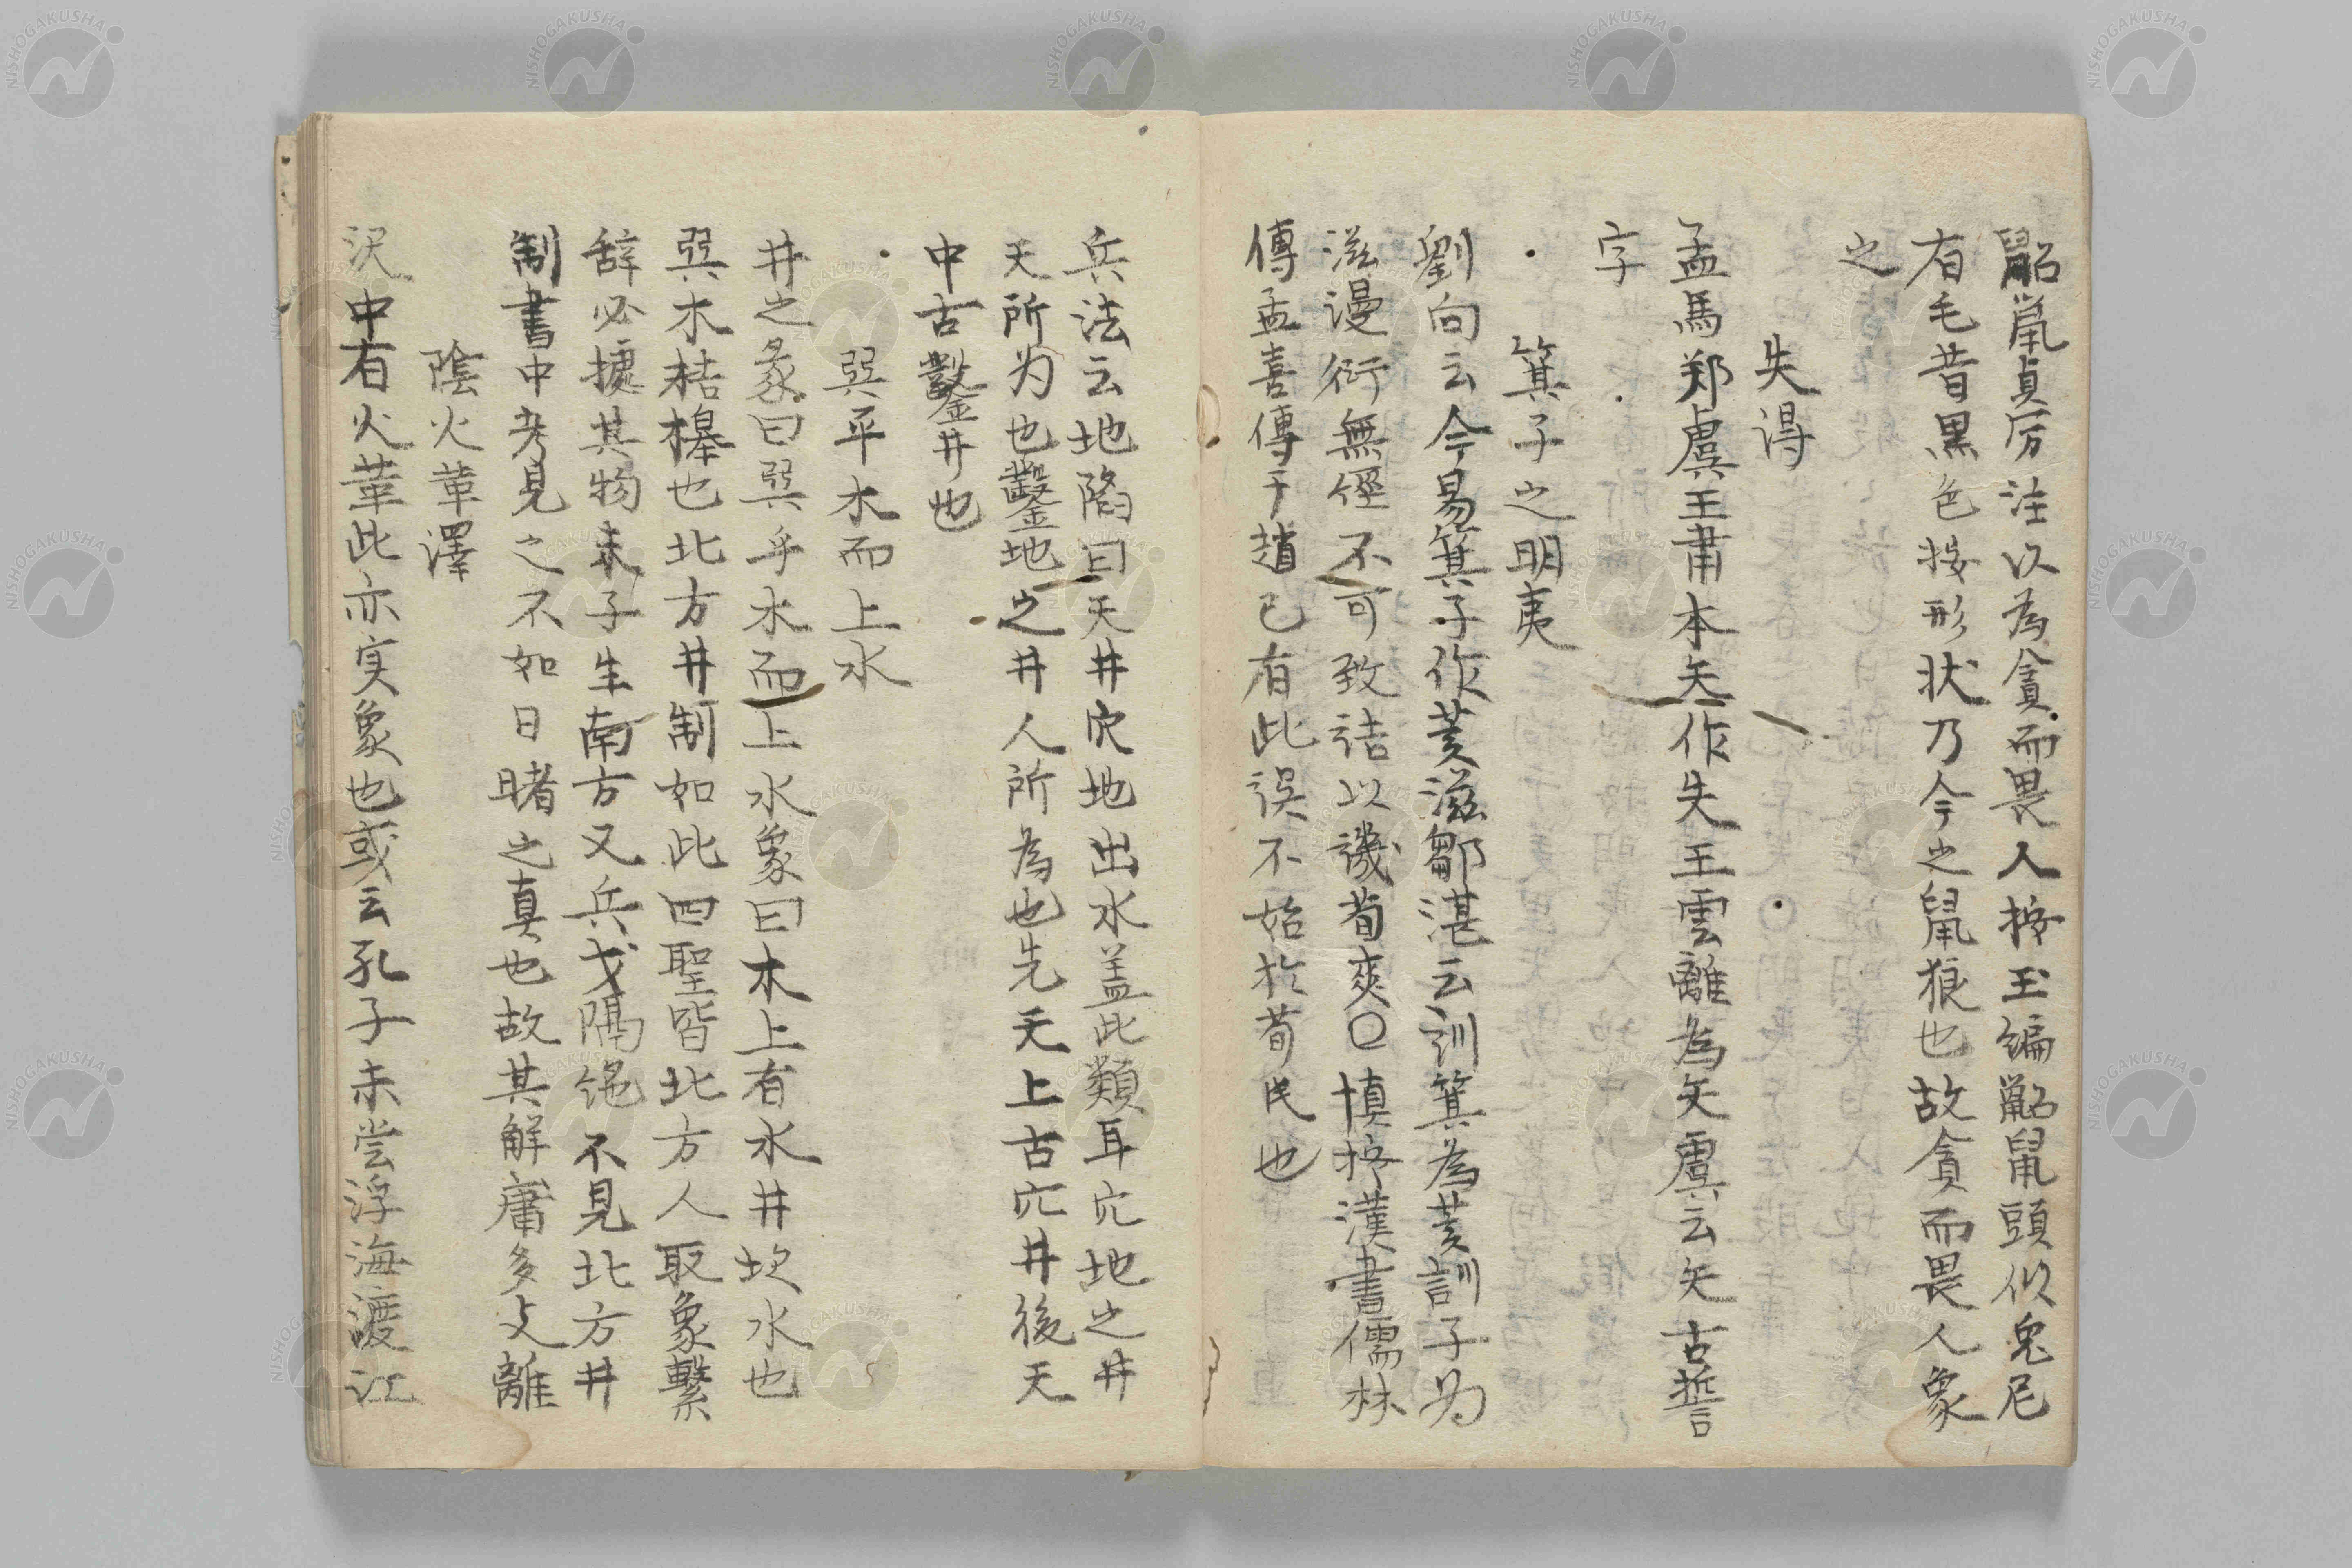 鼦鼠貞厉注以為貪而畏人按玉编鼦鼠頭似兔尾
有毛昔黒色按形状乃今之鼠狼也故貪而畏人象
之
失得
孟馬郑虞王肅本矢作失王雲離為矢虞云矢古誓
字
箕子之明夷
劉向云今易箕子作荄滋鄒湛云訓箕為荄訓子为
滋漫衍無经不可致詰以譏荀爽〇慎按漢書儒林
傳孟喜傳于趙已有此误不始於荀氏也
兵法云地陷曰天井穴地出水盖此類耳穴地之井
天所为也鑿地之井人所為也先天上古穴井後天
中古鑿井也
巽平水而上水
井之彖曰巽乎水而上水象曰木上有水井坎水也
巽木桔槔也北方井制如此四聖皆北方人取象繫
辞必據其物朱子生南方又兵戈隔绝不見北方井
制書中考見之不如日睹之真也故其解廱多攴離
陰火革澤
沢中有火革此亦実象也或云孔子未尝浮海渡江
NISHOGAKUSHA